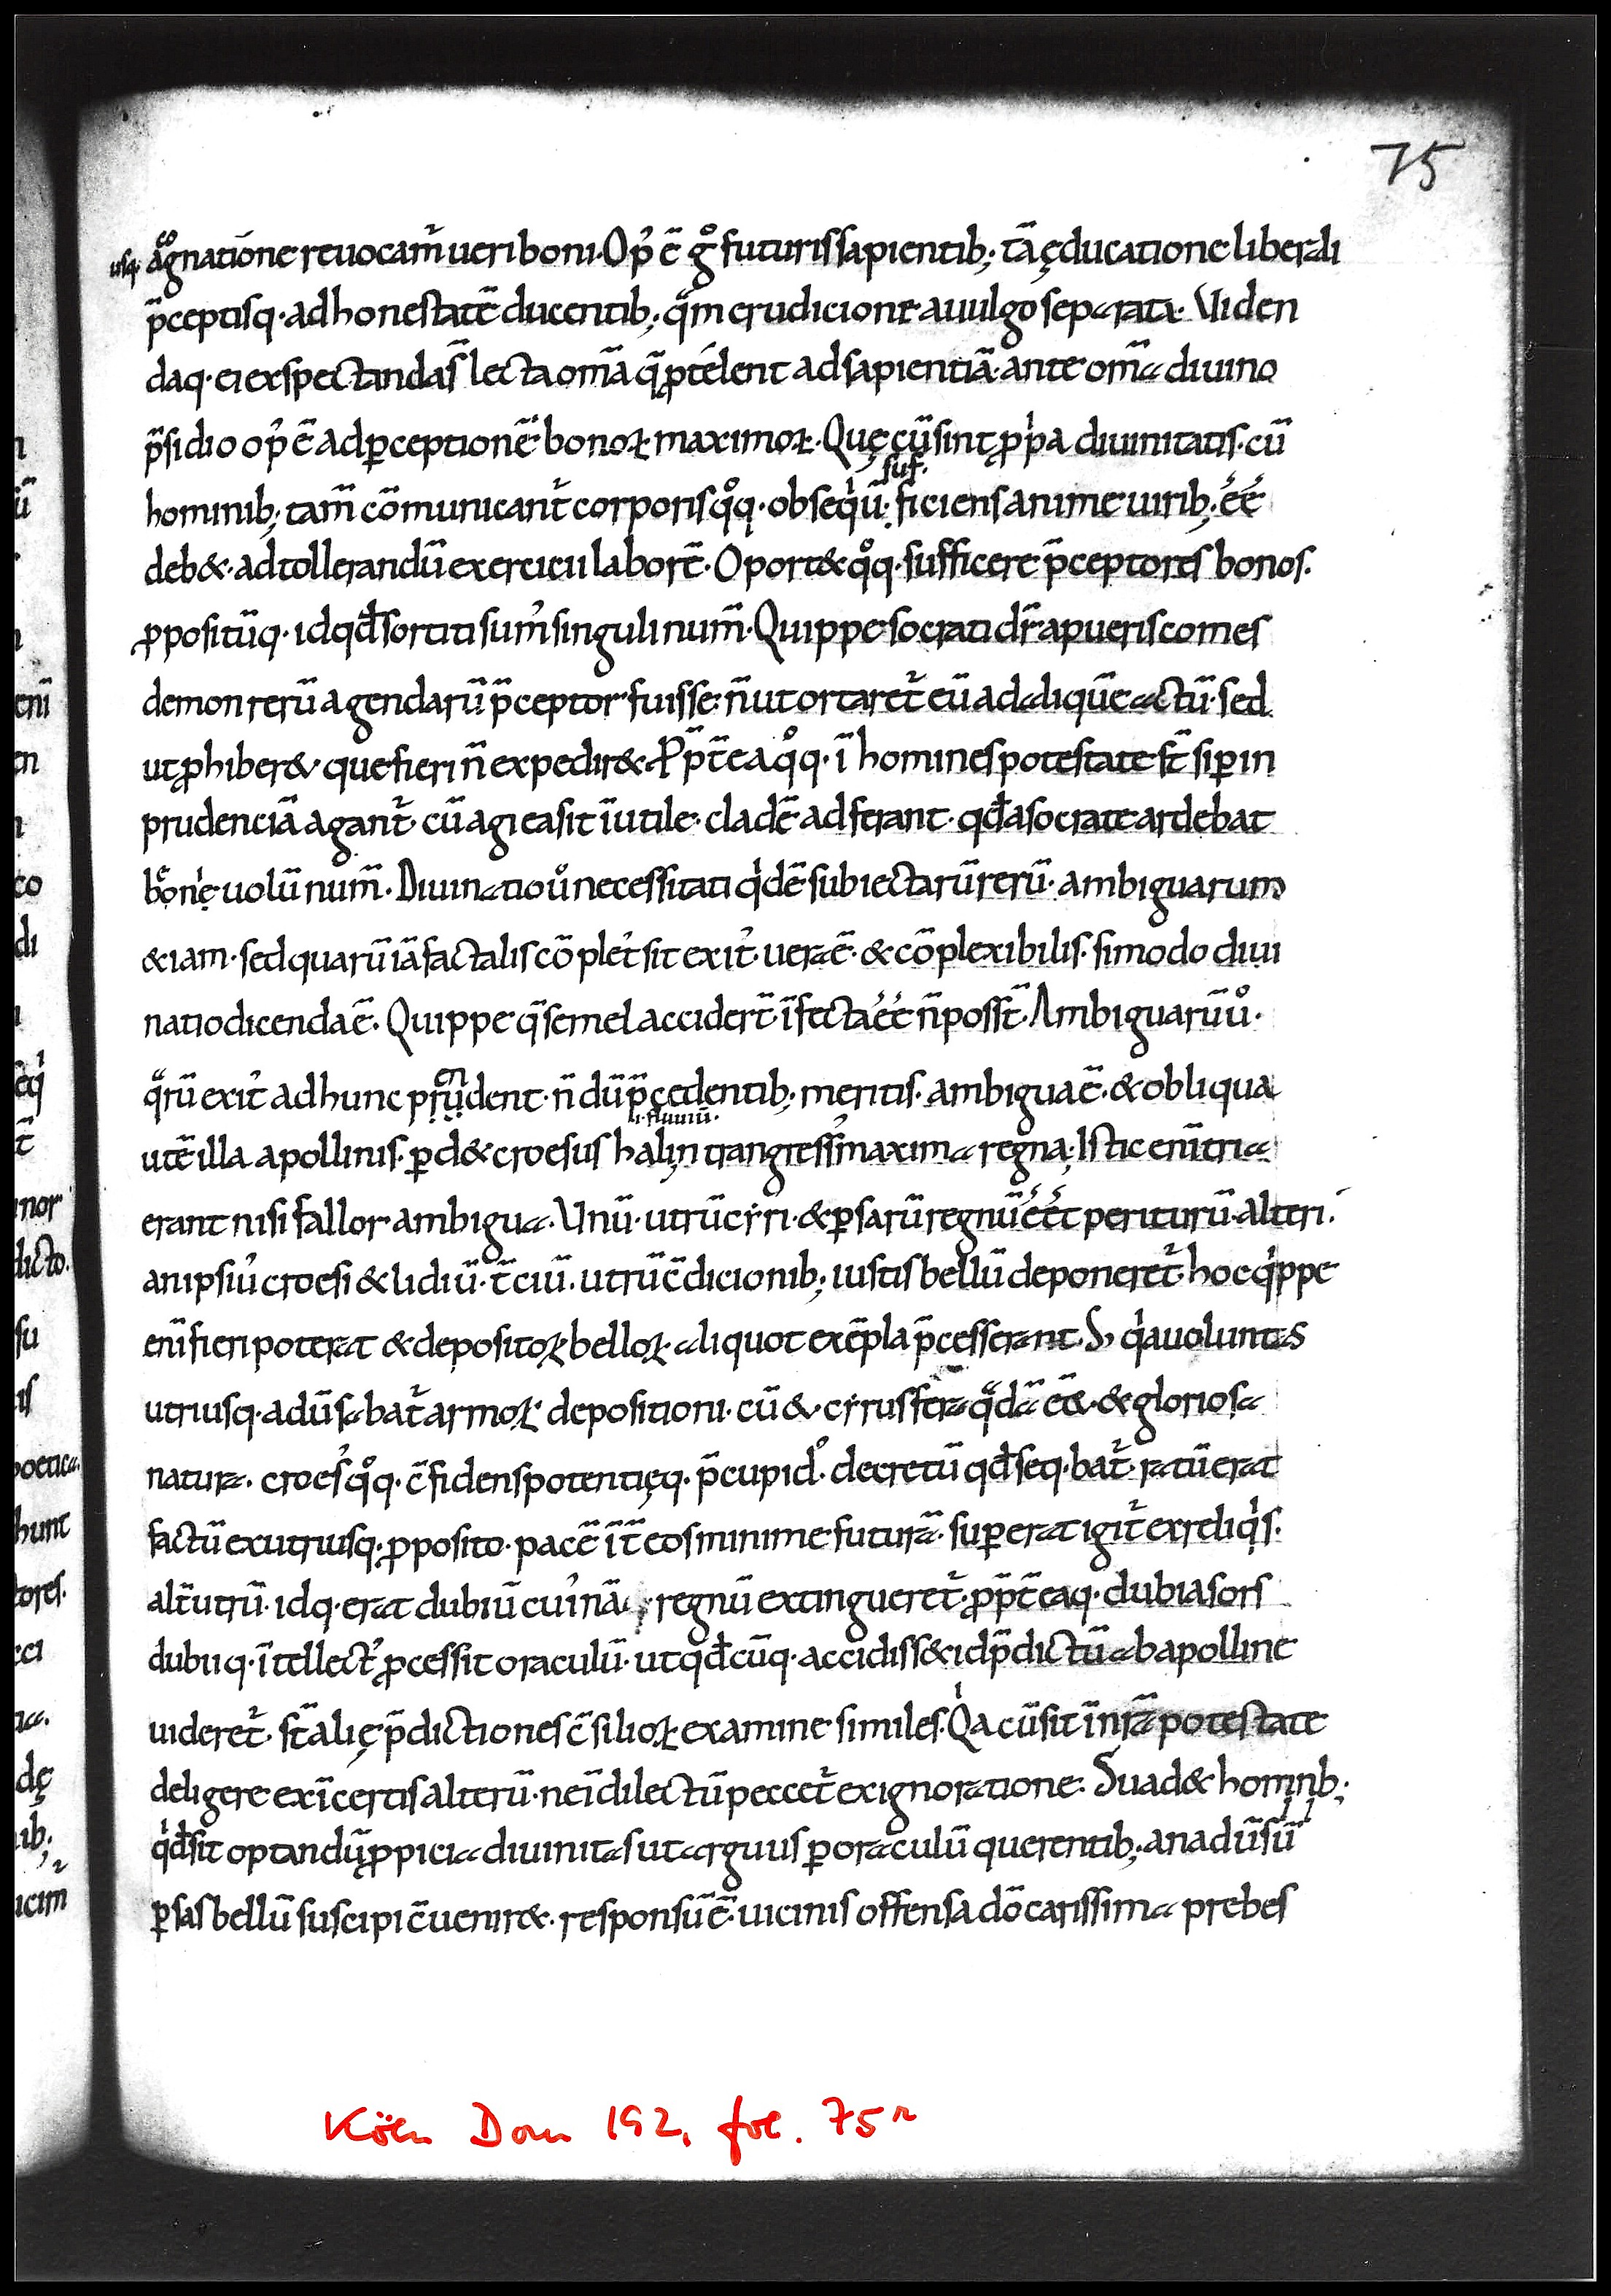 75
usq· ad cognatione reuocam̄ ueri boni. Op' ē g° futuris sapientib; tā ęducatione liberali
p̄ceptisq· ad honestatē ducentib; qm̄ erudicione a uulgo separata. Uiden
daq· ei exspectandas̄ lecta om̄a q̄ p̄télent ad sapientiā. ante om̄a diuino
p̄sidio op' ē ad ꝑceptionē bonoꝝ maximoꝝ. Quę cū sint ꝓpa diuinitatis. cū
suf
hominib; tam̄ cōmunicant̄ corporis q°q· obseqiū. ficiens anime uirib; éé
deb&. ad tollerandū exercicii laborē. Oport& q°q· sufficere p̄ceptores bonos.
ꝓpositūq· id qđ sortiti sum' singuli num̄. Quippe socrati dr̄ a pueris comes
demon rerū agendarū p̄ceptor fuisse. n̄ ut ortaret̄ eū ad aliquē actū. sed
ut ꝓhiber& que fieri n̄ expedir&. Ꝓpt̄ea q°q· ī homines potestate st̄ si ꝑ in
prudenciā agant̄. cū agi ea sit īutile. cladē adferant. qđ a socrate ardebat
bonię uolū num̄. Diuinatio u° necessitati qidē subiectarū rerū. ambiguarum
&iam. sed quarū iā factalis cōplet' sit exit'. uera ē. & cōplexibilis. si modo diui
natio dicenda ē. Quippe q̄ semel accider̄t īfecta éé n̄ poss̄t. Ambiguarū u°.
qrū exit' adhunc prudent. n̄dū p̄cedentib; meritis. ambigua ē. & obliqua
.i. fluuiū.
ut ē illa apollinis. ꝑd& croesus halin trangress' maxima regna. Istic enī tria
erant nisi fallor ambigua. Unū. utrū cyri. & ꝑsarū regnū éét periturū. alteri.
an ipsiu' croesi & lidiū. t̄ciū. utrū c̄dicionib; iustis bellū deponeret̄. hoc qippe
enī fieri poterat & depositoꝝ belloꝝ aliquot exēpla p̄cesserant. S; qia uoluntas
utriusq· adūsabat̄ armoꝝ depositioni. cū & cyrus fera qdā ē&. & gloriosa
natura. croes' q°q· c̄fidens potentięq· p̄cupid'. decretū qđ seq·bat̄. ratū erat
factū ex utriusq· ꝓposito. pacē īt̄ eos minime futurā. superat igit̄ ex reliqis.
alt̄utrū. idq· erat dubiū cui'nā regnū extingueret̄. ꝓpt̄eaq· dubia sors
dubiiq· ītellect' ꝓcessit oraculū. ut qđcūq· accidiss& id p̄dictū ab apolline
uideret̄. st̄ alię p̄dictiones c̄silioꝝ examine similes. Qia cū sit in nr̄a potestate
deligere ex īcertis alterū. ne ī dilectū peccet̄ ex ignoratione. Suad& hominb;
qđ sit optandū ꝓpicia diuinitas ut arguus ꝑ oraculū querentib; an adūsū
ꝑsas bellū suscipi c̄uenir&. responsū ē. uicinis offensa dō carissima prebes
Köln Dom 192, fol. 75r